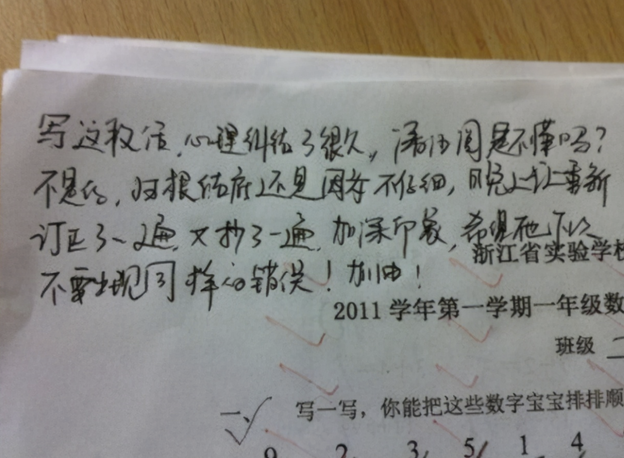 写这段话,心理纠结了很久,潘沛闻是不懂吗?
不是的,归根结底还是因为不仔细,昨晚上让重新
订正了一遍,又抄了一遍,加深印象,希望他下次
不要出现同样的错误!加油!
浙江省实验学校
2011 学年第一学期一年级数
班级 二
一、 写一写,你能把这些数字宝宝排排顺
9 2 3 5 1 4